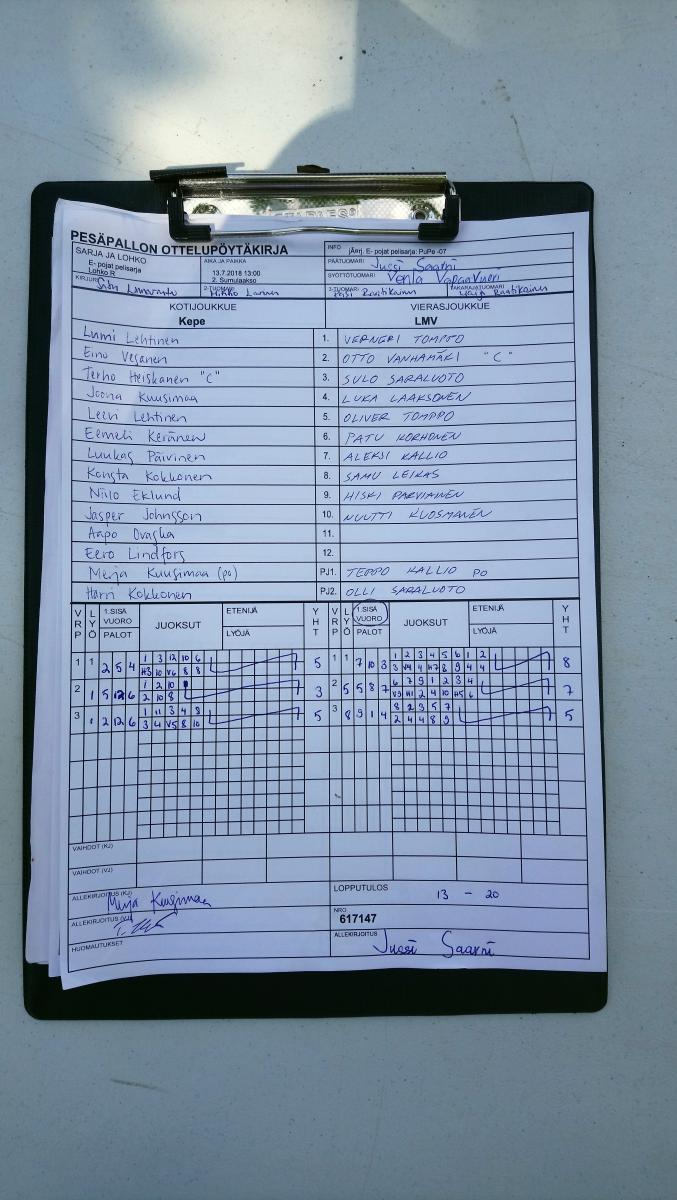 PESÄPALLON OTTELUPÖYTÄKIRJA
SARJA JA LOHKO
E- pojat pelisarja
Lohko R
AIKA JA PAIKKA
13.7.2018 13:00
2. Sumulaakso
INFO
E- pojat pelisarja: PuPe -07
PÄÄTUOMARI Jussi Saarni
SYÖTTÖTUOMARI Venla Vapaavuori
KIRJURI
2-TUOMARI Mikko
3-TUOMARI Raatikainen
TAKARAJATUOMARI Raatikainen
KOTIJOUKKUE
Kepe
VIERASJOUKKUE
LMV
Lumi Lehtinen 1. VERNERI TOMPPO
Eino Vesanen 2. OTTO VANHAMÄKI "C"
Terho Heiskanen "C" 3. SULO SARALUOTO
Joona Kuusimaa 4. LUKA LAAKSONEN
Leevi Lehtinen 5. OLIVER TOMPPO
Eemeli Keränen 6. PATU KORHONEN
Luukas Päivinen 7. ALEKSI KALLIO
Konsta Kokkonen 8. SAMU LEIKAS
Niilo Eklund 9. HISKI PARVIAINEN
Jasper Johnsson 10. NUUTTI KUOSMANEN
Aapo Ovaska 11.
Eero Lindfors 12.
Merja Kuusimaa (po) PJ1. TEPPO KALLIO PO
Harri Kokkonen PJ2. OLLI SARALUOTO
VRP LYÖ 1.SISÄ VUORO PALOT JUOKSUT ETENIJÄ LYÖJÄ YHT VRP LYÖ 1.SISÄ VUORO PALOT JUOKSUT ETENIJÄ LYÖJÄ YHT
1 1 2 5 4 1 3 12 10 6 5 1 1 7 10 3 1 2 3 4 5 6 1 2 8
H3 10 V6 8 8 3 V4 4 H7 8 9 4 4
2 1 5 12 6 1 2 10 3 2 5 5 8 7 6 7 9 1 2 3 4 7
2 10 8 V9 H1 2 4 10 H5 6
3 1 2 12 6 1 11 3 4 8 5 3 8 9 1 4 8 2 3 5 7 5
3 4 V5 8 10 2 4 4 8 9
VAIHDOT (KJ)
VAIHDOT (VJ)
ALLEKIRJOITUS (KJ) Merja Kuusimaa
LOPPUTULOS 13 - 20
ALLEKIRJOITUS (VJ)
NRO
617147
HUOMAUTUKSET
ALLEKIRJOITUS Jussi Saarni